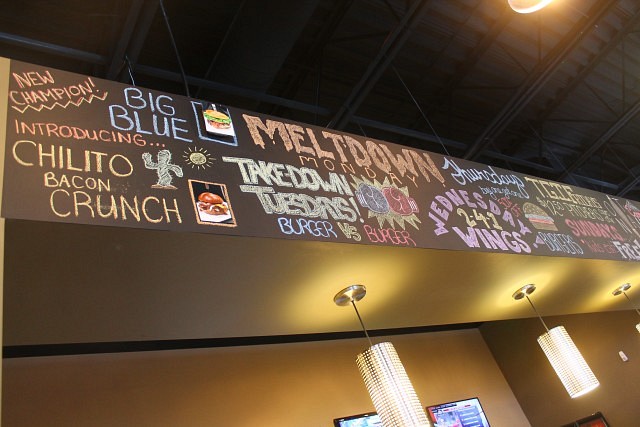 NEW
CHAMPION!
BIG
BLUE
INTRODUCING...
CHILITO
BACON
CRUNCH
MELTDOWN
MONDAY
TAKEDOWN
TUESDAYS!
BURGER VS BURGER
WEDNESDAY
2-4-1
WINGS
Thursdays
BURGERS
SUNDAYS